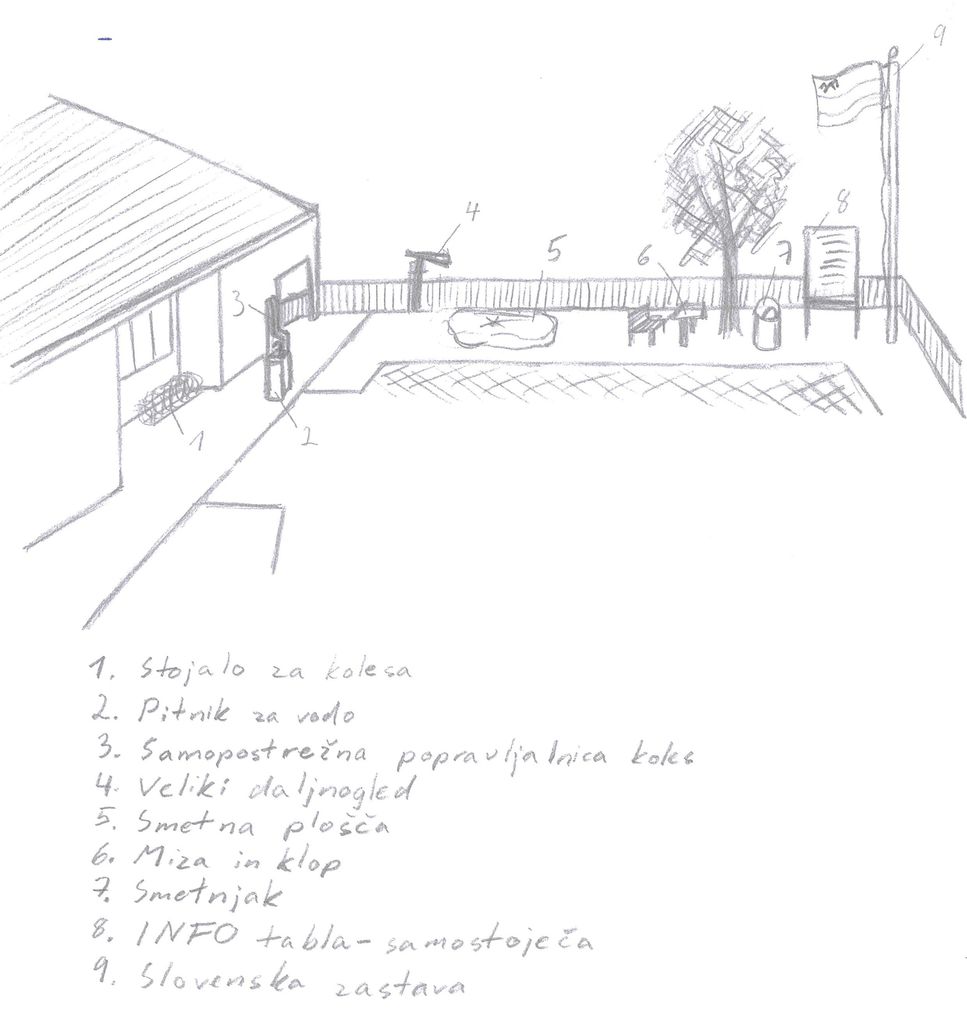 9
8
4
5
6
7
3
1
2
1. Stojalo za kolesa
2. Pitnik za vodo
3. Samopostrežna popravljalnica koles
4. Veliki daljnogled
5. Smetna plošča
6. Miza in klop
7. Smetnjak
8. INFO tabla - samostoječa
9. Slovenska zastava